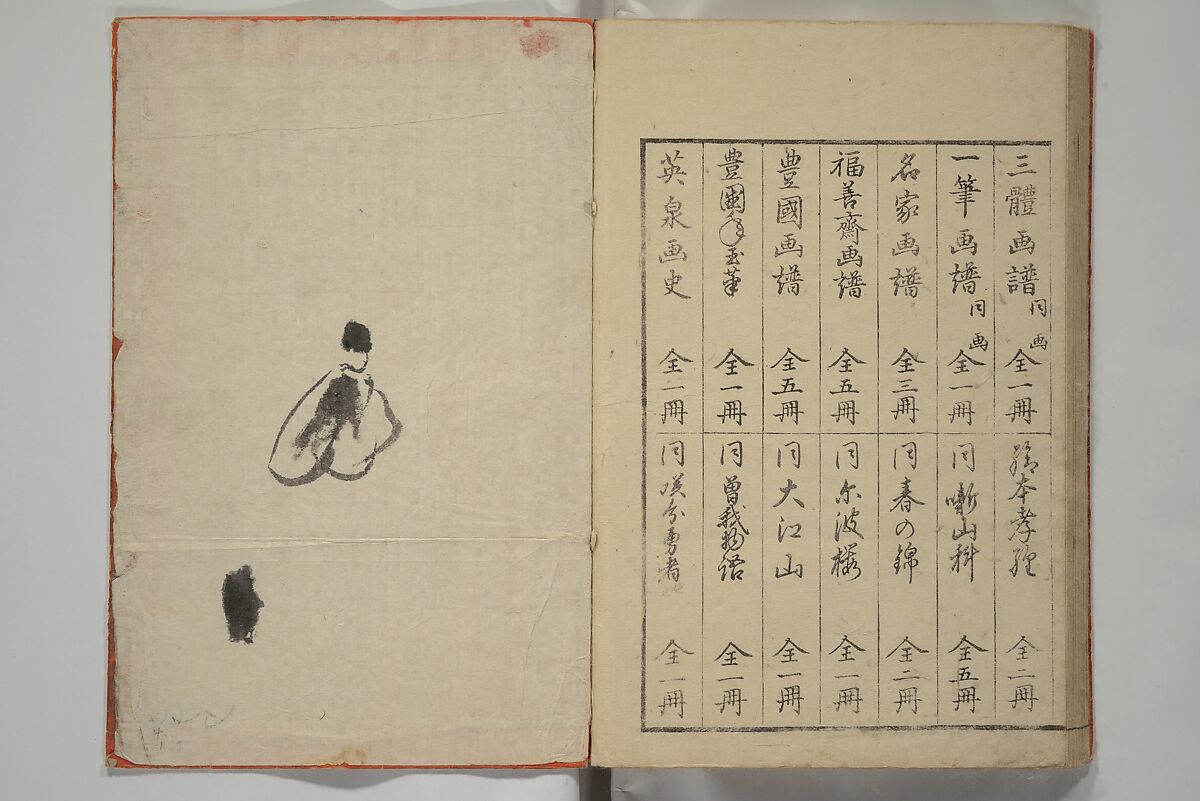 三體画譜 同画 全一冊
一筆画譜 同画 全一冊
名家画譜 全三冊
福善齋画譜 全五冊
豊國画譜 全五冊
豊國年玉筆 全一冊
英泉画史 全一冊
繪本孝經 全二冊
同 噺山科 全五冊
同 春の錦 全二冊
同 尓波桜 全一冊
同 大江山 全一冊
同 曽我物語 全一冊
同 咲分勇者 全一冊